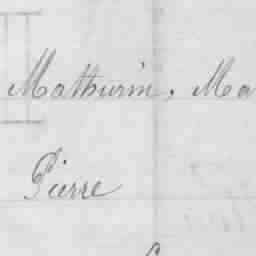 Mathurin, Ma
Pierre